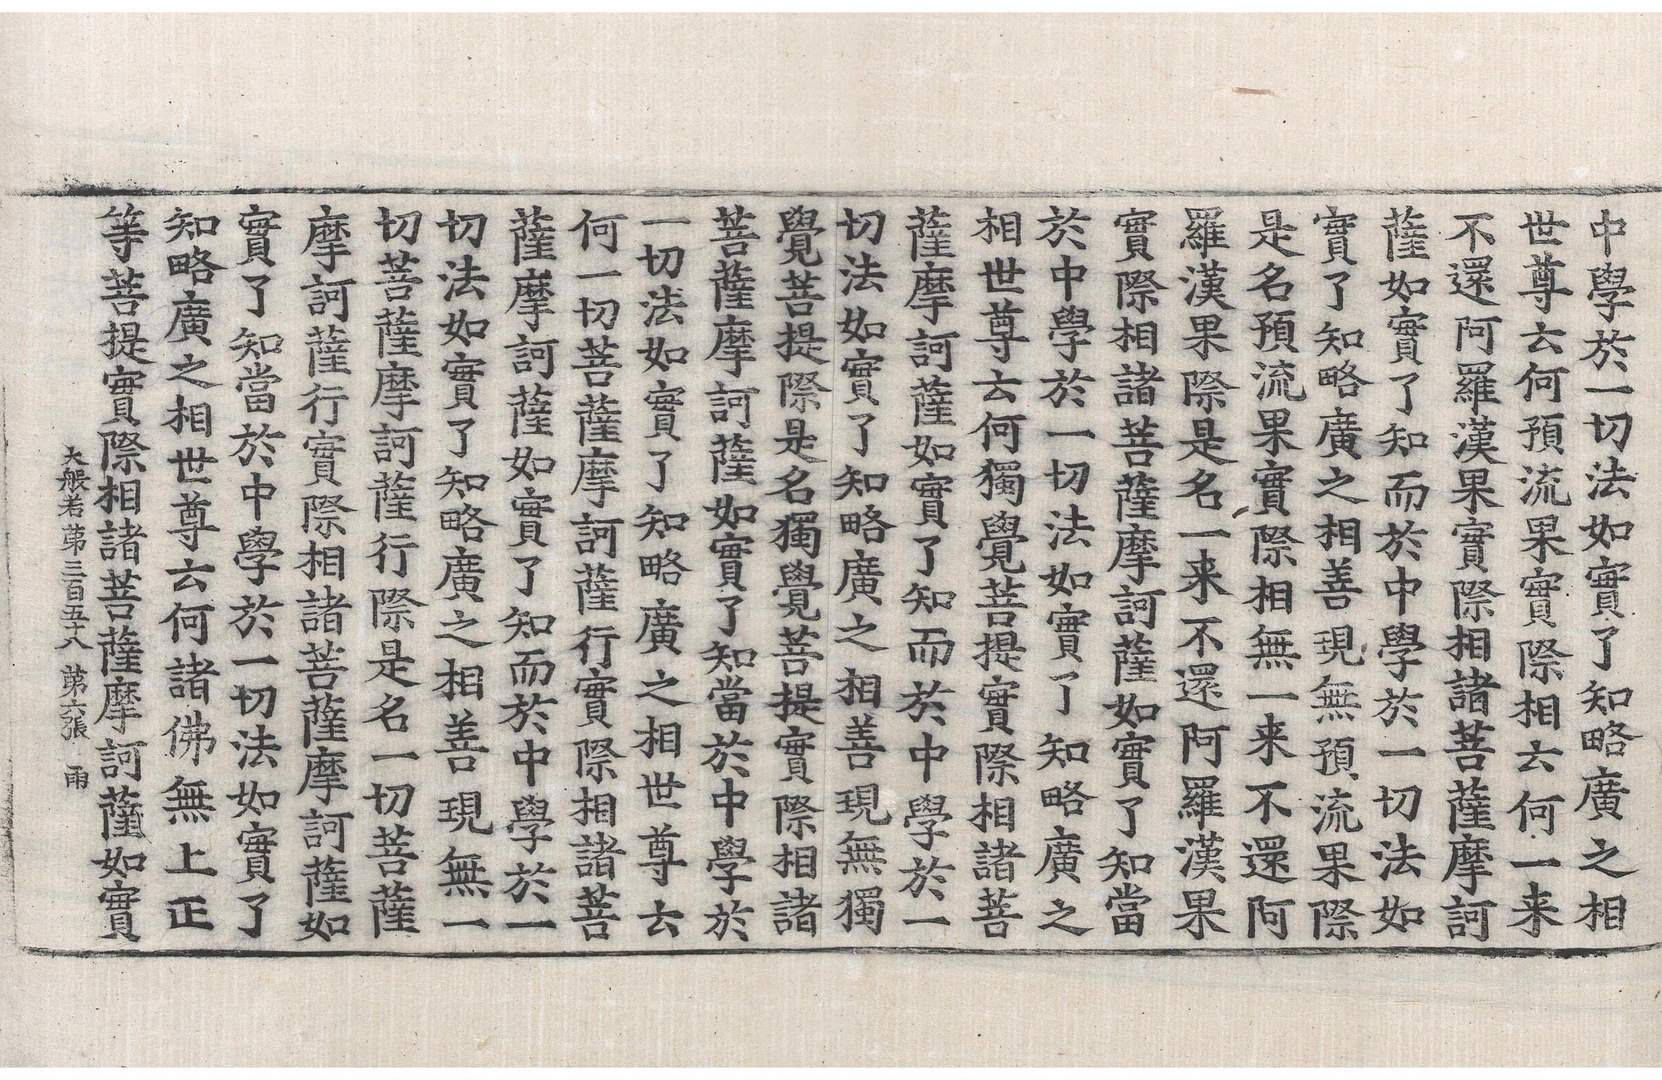 中學於一切法如實了知略廣之相
世尊云何預流果實際相云何一来
不還阿羅漢果實際相諸菩薩摩訶
薩如實了知而於中學於一切法如
實了知略廣之相善現無預流果際
是名預流果實際相無一来不還阿
羅漢果際是名一来不還阿羅漢果
實際相諸菩薩摩訶薩如實了知當
於中學於一切法如實了知略廣之
相世尊云何獨覺菩提實際相諸菩
薩摩訶薩如實了知而於中學於一
切法如實了知略廣之相善現無獨
覺菩提際是名獨覺菩提實際相諸
菩薩摩訶薩如實了知當於中學於
一切法如實了知略廣之相世尊云
何一切菩薩摩訶薩行實際相諸菩
薩摩訶薩如實了知而於中學於一
切法如實了知略廣之相善現無一
切菩薩摩訶薩行際是名一切菩薩
摩訶薩行實際相諸菩薩摩訶薩如
實了知當於中學於一切法如實了
知略廣之相世尊云何諸佛無上正
等菩提實際相諸菩薩摩訶薩如實
大般若第三百五十八 第六張 雨